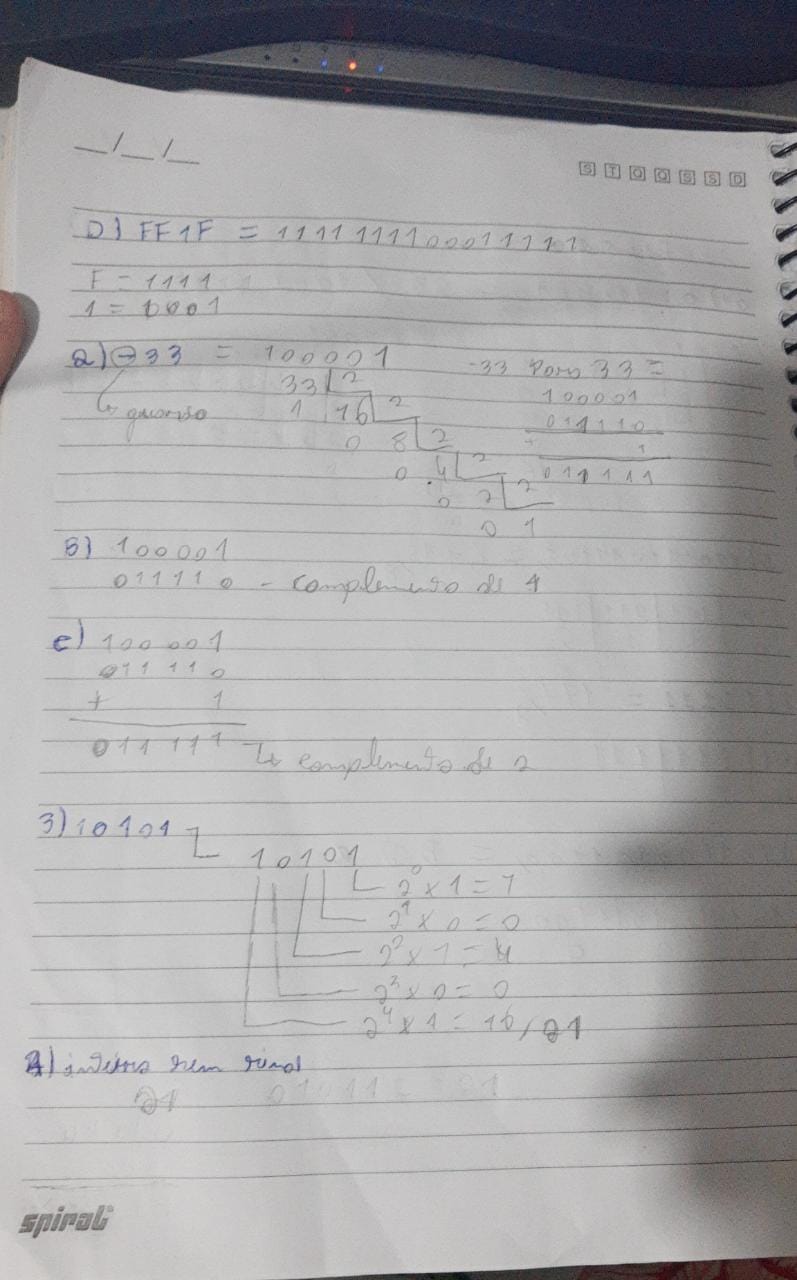 __/__/__
S T Q Q S S D
D) FF1F = 1111111100011111
F = 1111
1 = 0001
2) -33 = 100001
-33 para 33 =
33 2
100001
1 16 2
011110
0 8 2
+ 1
0 4 2
011111
0 2 2
0 1
B) 100001
011110 - complemento de 1
C) 100001
011110
+ 1
011111 complemento de 2
3) 10101
10101
2⁰ x 1 = 1
2¹ x 0 = 0
2² x 1 = 4
2³ x 0 = 0
2⁴ x 1 = 16 / 21
A) inteiros sem sinal
21
spiral